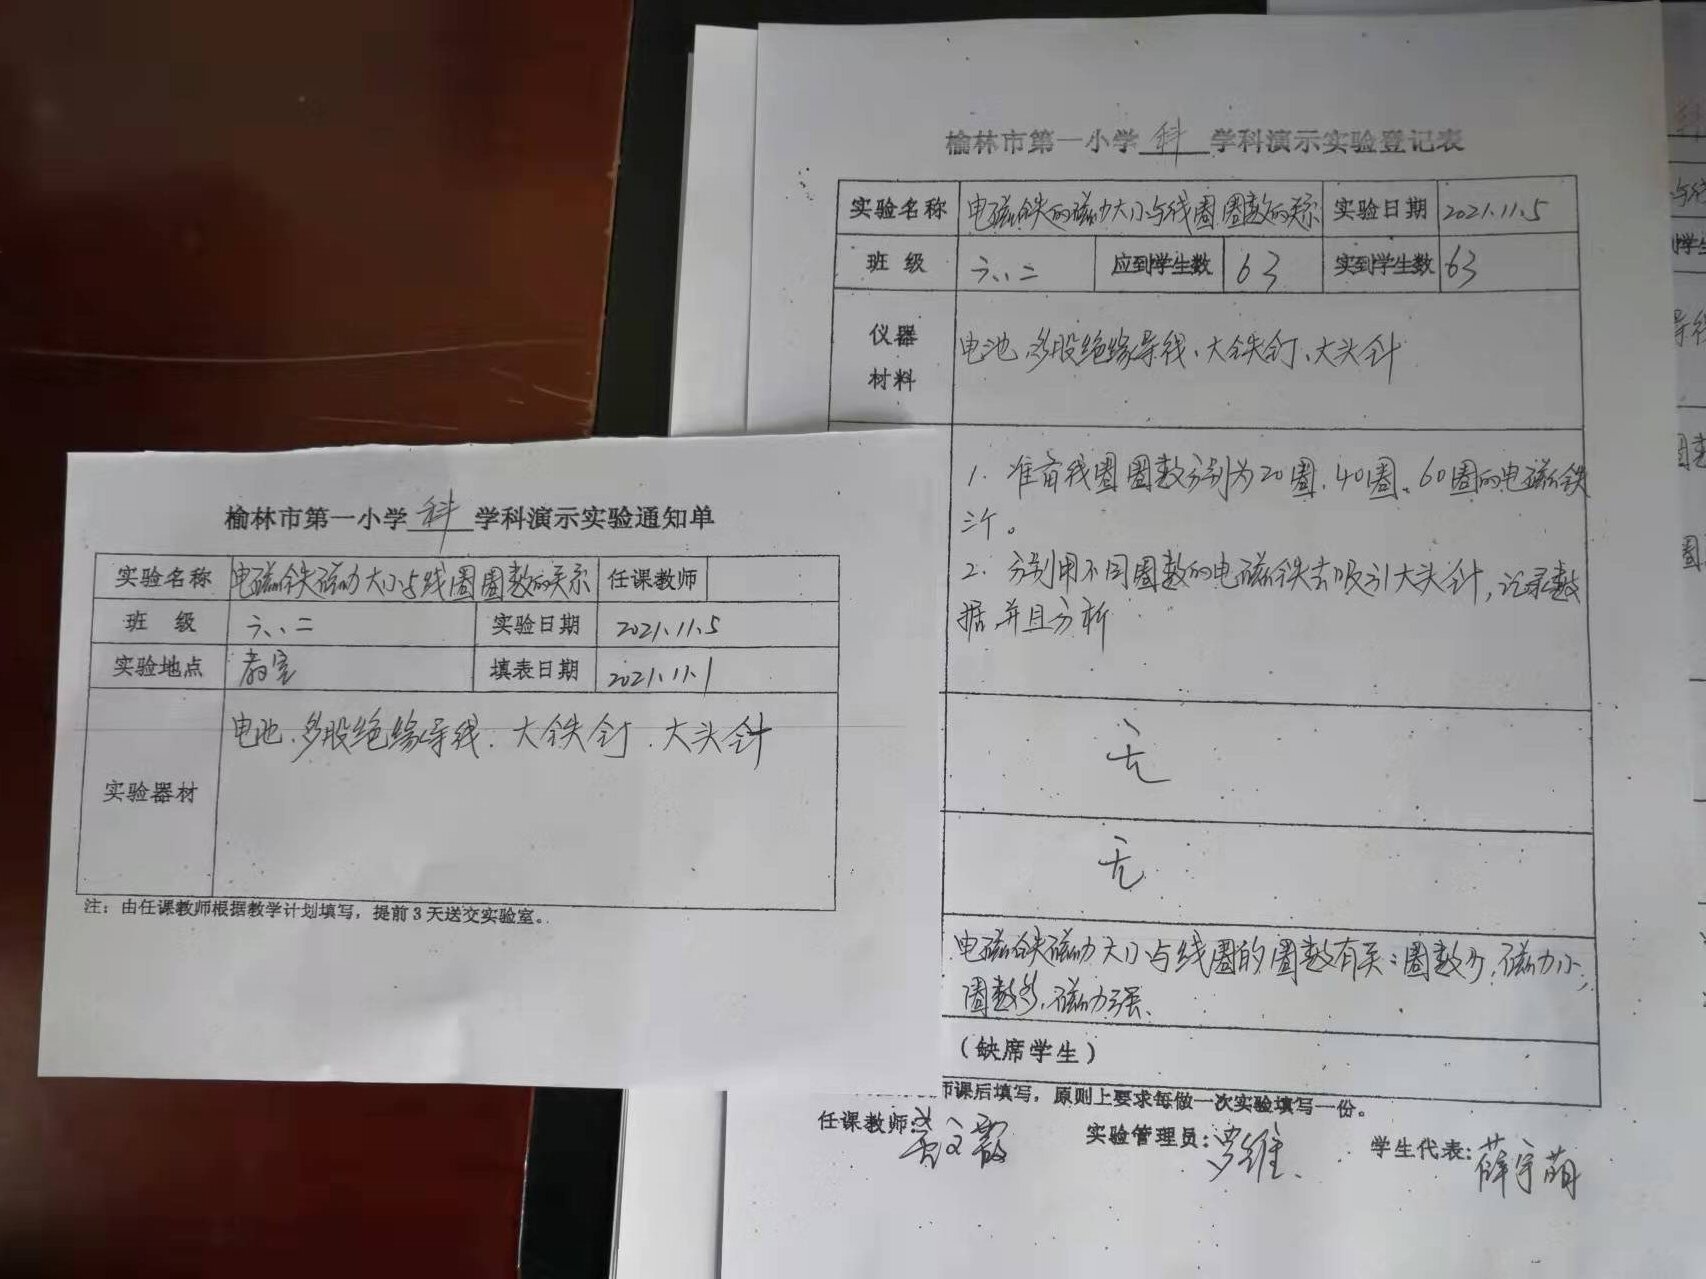 榆林市第一小学 科 学科演示实验登记表
实验名称 电磁铁的磁力大小与线圈圈数的关系 实验日期 2021.11.5
班 级 六、二 应到学生数 63 实到学生数 63
仪器
材料
电池、多股绝缘导线、大铁钉、大头针
1. 准备线圈圈数分别为20圈、40圈、60圈的电磁铁
三个。
2. 分别用不同圈数的电磁铁去吸引大头针,记录数
据并且分析
无
无
电磁铁磁力大小与线圈的圈数有关:圈数少,磁力小,
圈数多,磁力强、
(缺席学生)
师课后填写,原则上要求每做一次实验填写一份。
任课教师: 实验管理员:罗维 学生代表:薛宇萌
榆林市第一小学 科 学科演示实验通知单
实验名称 电磁铁磁力大小与线圈圈数的关系 任课教师
班 级 六、二 实验日期 2021.11.5
实验地点 教室 填表日期 2021.11.1
实验器材 电池、多股绝缘导线、大铁钉、大头针
注:由任课教师根据教学计划填写,提前3天送交实验室。